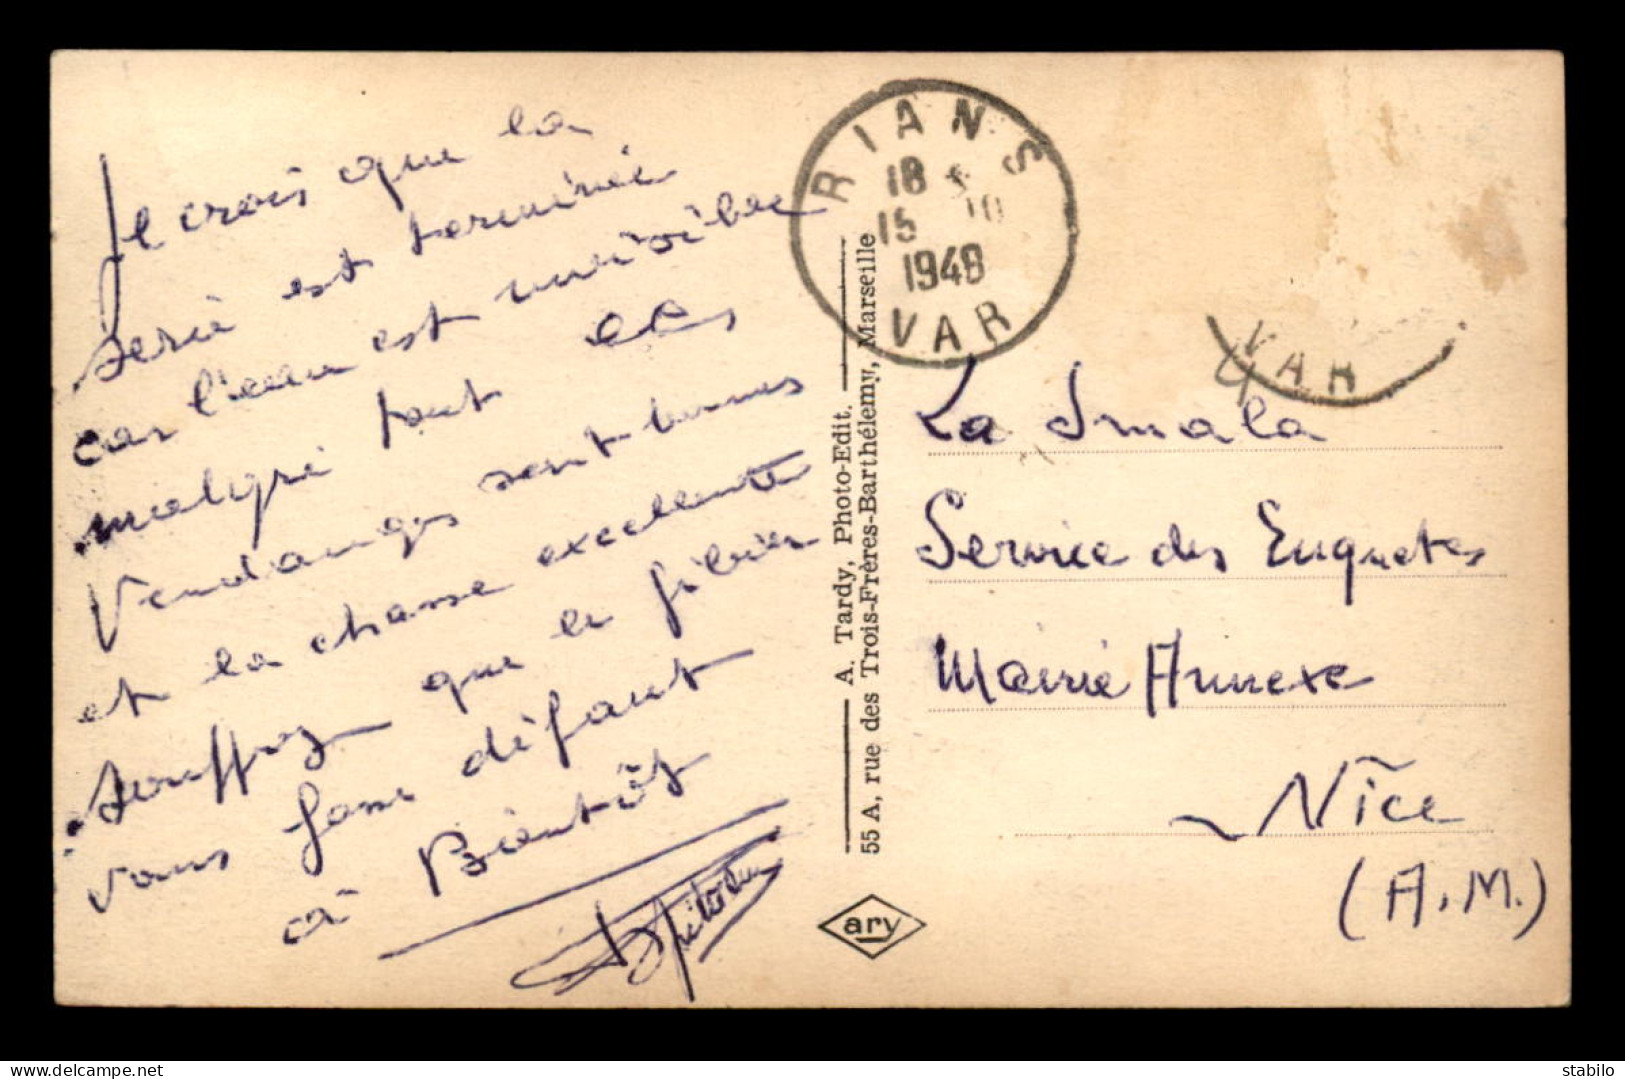 Je crois que la
serie est terminée
car l'eau est
malgré tout les
Vendanges sont bonnes
et la chasse excellente
souffrez que le gibier
vous fasse défaut
à Bientôt
RIANS
18
15 10
1948
VAR
A. Tardy, Photo-Edit.
55 A, rue des Trois-Frères-Barthélemy, Marseille
ary
VAR
La Smala
Service des Enquetes
Mairie Annexe
Nice
(A.M.)
stabilo